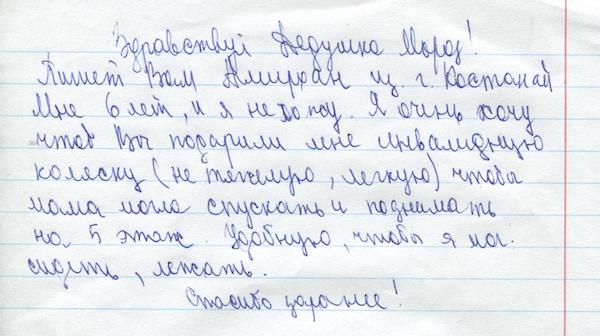 Здравствуй Дедушка Мороз!
Пишет Вам Амирхан из г. Костанай
Мне 6 лет, и я не хожу. Я очинь хочу
чтоб Вы подарили мне инвалидную
коляску (не тяжелую, легкую) чтобы
мама могла спускать и поднимать
на 5 этаж. Удобную, чтобы я мог.
сидеть, лежать.
Спасибо заранее!